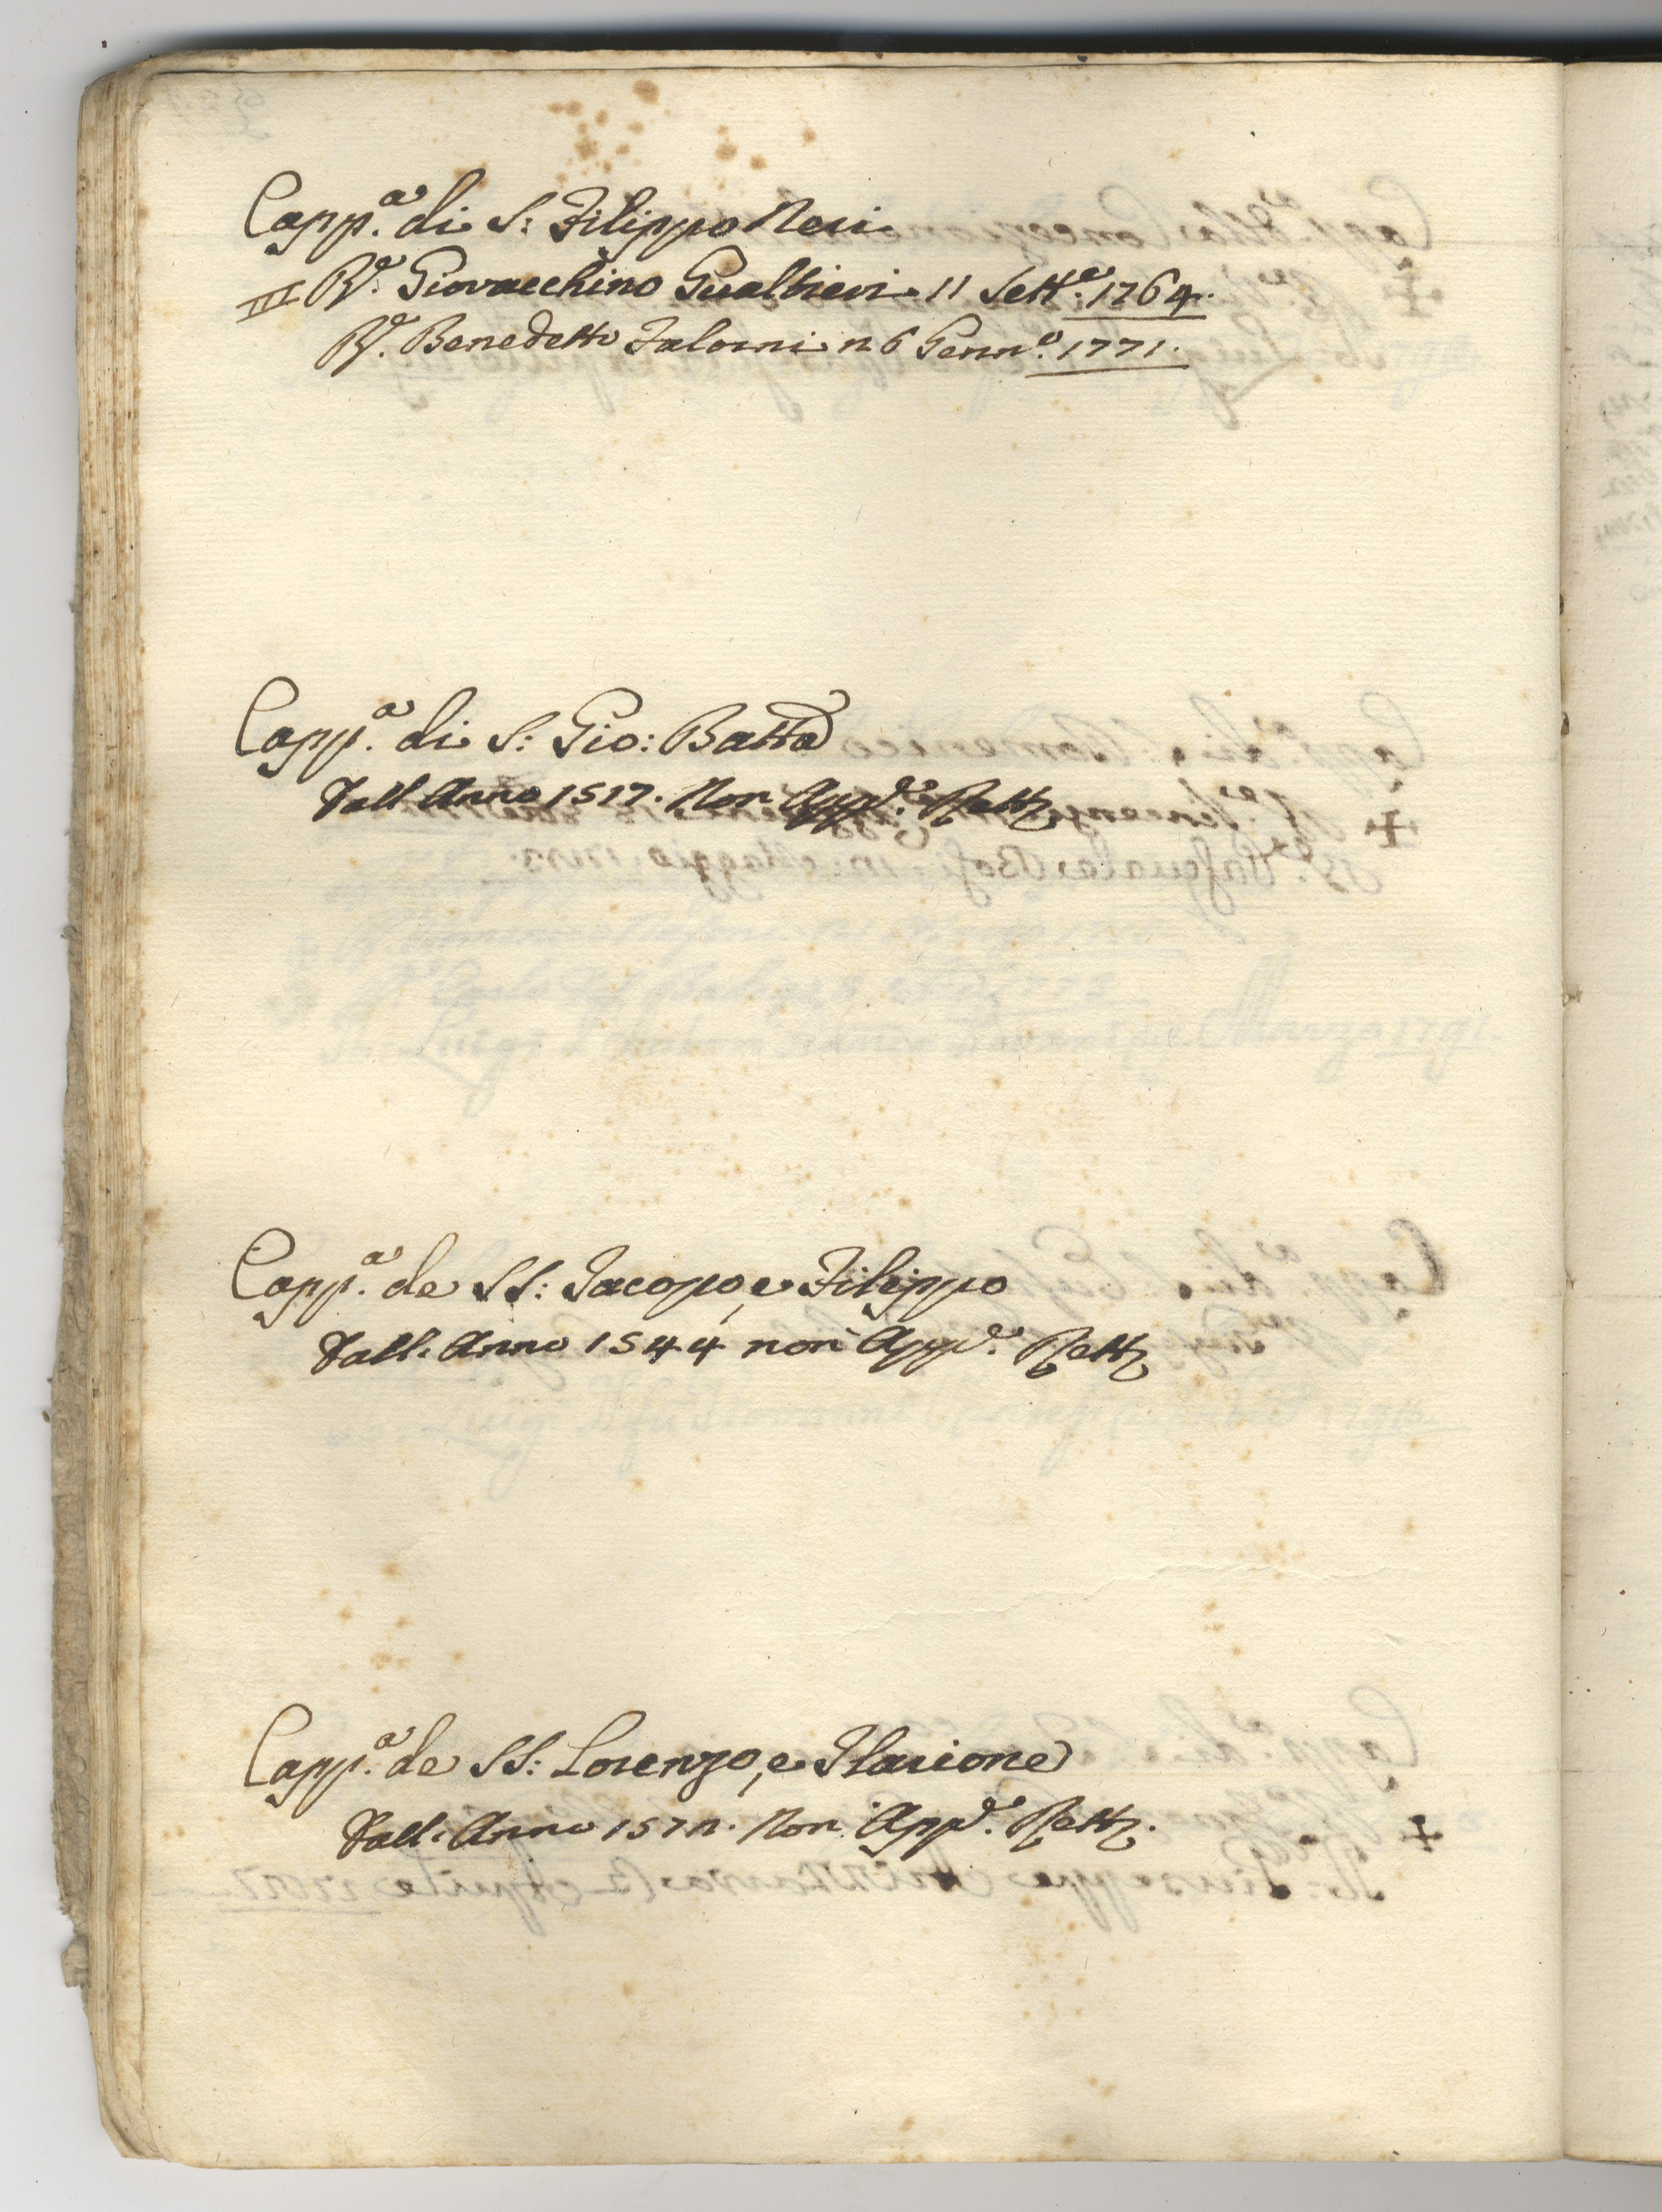 Capp.ª di S: Filippo Neri
R.º Giovacchino Gualtieri 11 Sett.e 1764.
R.º Benedetto Falorni 26 Genn.º 1771.
Capp.ª di S: Gio: Batta
Vall. Anno 1517. Non App.º Rett.
Capp.ª de SS: Jacopo, e Filippo
Vall. Anno 1544 non App.º Rett.
Capp.ª de SS: Lorenzo, e Ilarione
Vall. Anno 1572. Non App.º Rett.